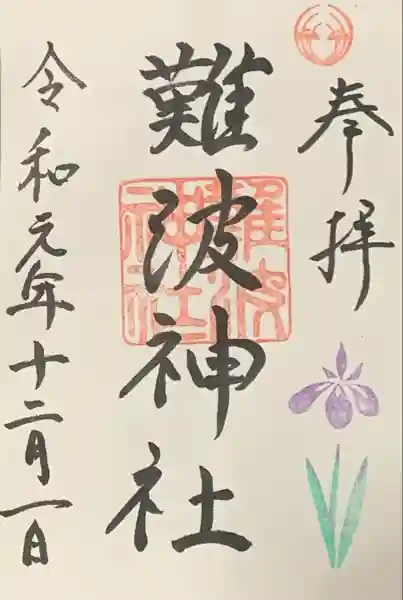 奉拝
難波神社
難波神社
令和元年十二月一日